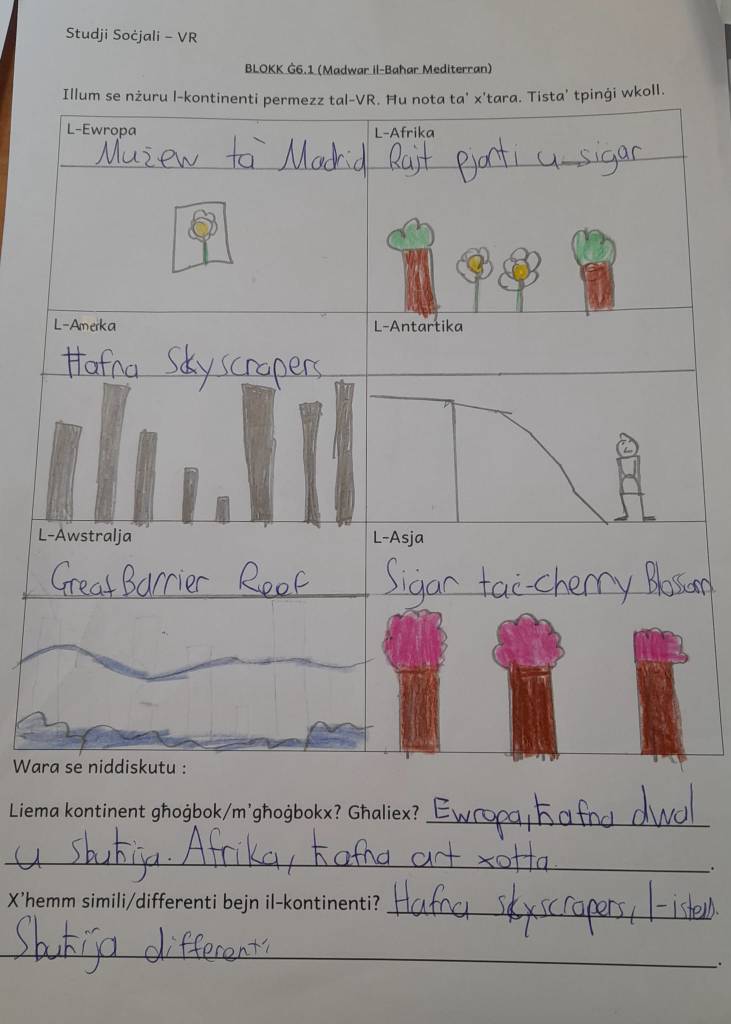 Studji Soċjali – VR
BLOKK Ġ6.1 (Madwar il-Baħar Mediterran)
Illum se nżuru l-kontinenti permezz tal-VR. Ħu nota ta’ x’tara. Tista’ tpinġi wkoll.
L-Ewropa
Mużew ta' Madrid
L-Afrika
Rajt pjanti u siġar
L-Amerka
Ħafna Skyscrapers
L-Antartika
L-Awstralja
Great Barrier Reef
L-Asja
Siġar taċ-cherry Blossom
Wara se niddiskutu :
Liema kontinent għoġbok/m’għoġbokx? Għaliex? Ewropa, ħafna dwal
u sbuħija. Afrika, ħafna art xotta.
X’hemm simili/differenti bejn il-kontinenti? Ħafna skyscrapers,
Sbuħija differenti.